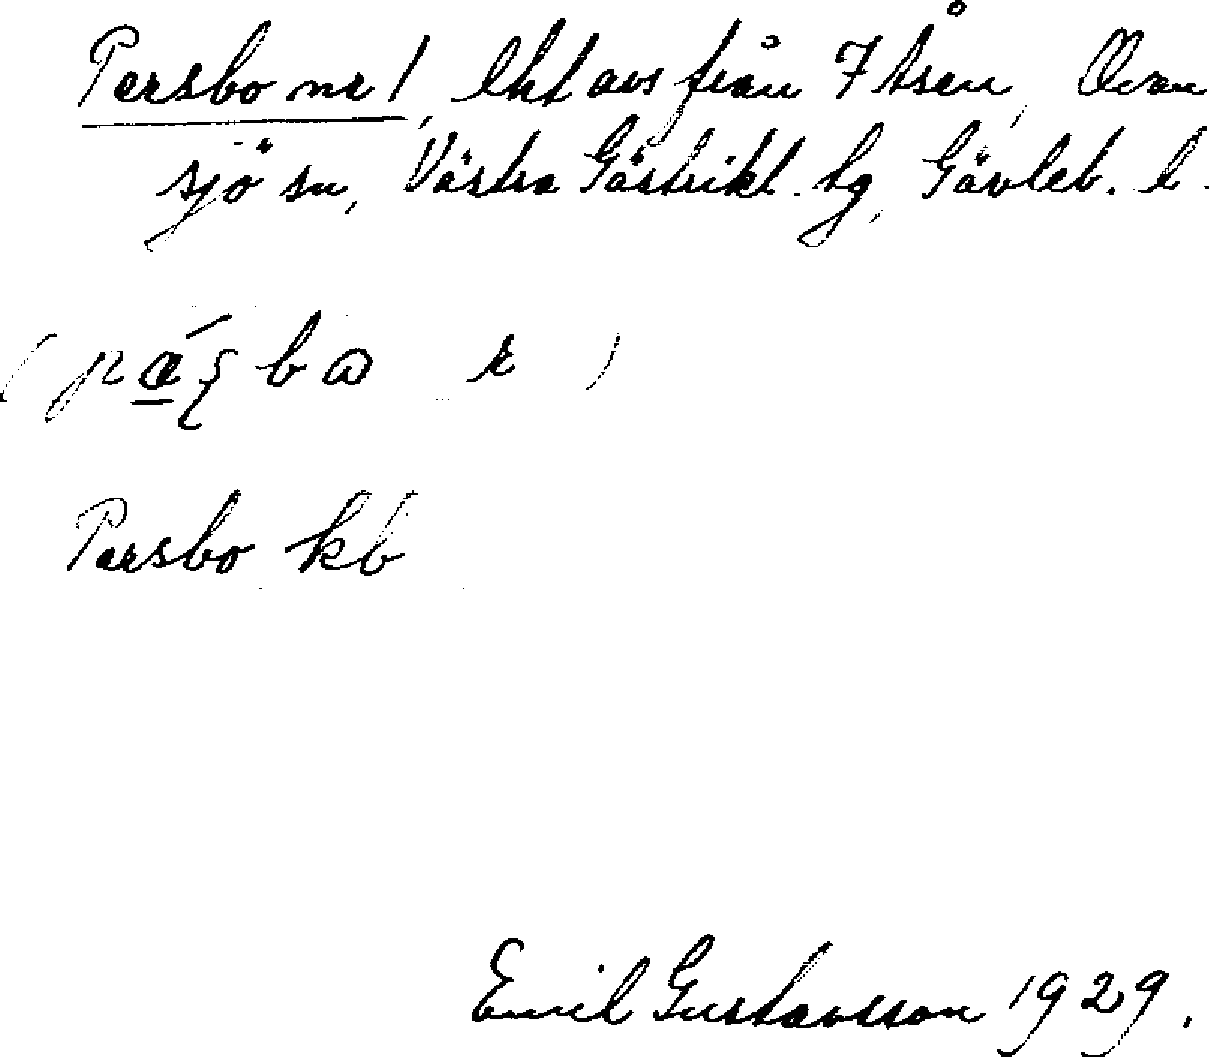 Persbo nr 1, lht avs från 7 Åsen, Ovan
sjö sn, Västra Gästrikl. tg, Gävleb. l.
Persbo kb
Emil Gustavsson 1929.